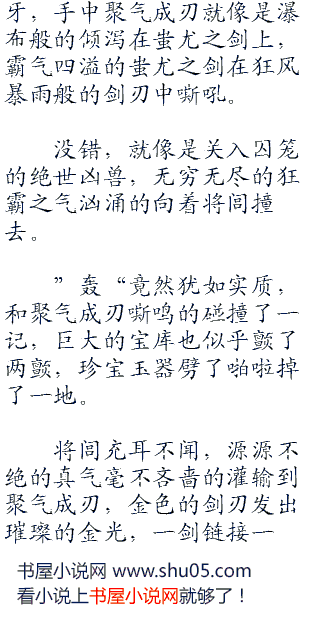 牙，手中聚气成刃就像是瀑
布般的倾泻在蚩尤之剑上，
霸气四溢的蚩尤之剑在狂风
暴雨般的剑刃中嘶吼。
没错，就像是关入囚笼
的绝世凶兽，无穷无尽的狂
霸之气汹涌的向着将闾撞
去。
”轰“竟然犹如实质，
和聚气成刃嘶鸣的碰撞了一
记，巨大的宝库也似乎颤了
两颤，珍宝玉器劈了啪啦掉
了一地。
将闾充耳不闻，源源不
绝的真气毫不吝啬的灌输到
聚气成刃，金色的剑刃发出
璀璨的金光，一剑链接一
书屋小说网 www.shu05.com
看小说上书屋小说网就够了！